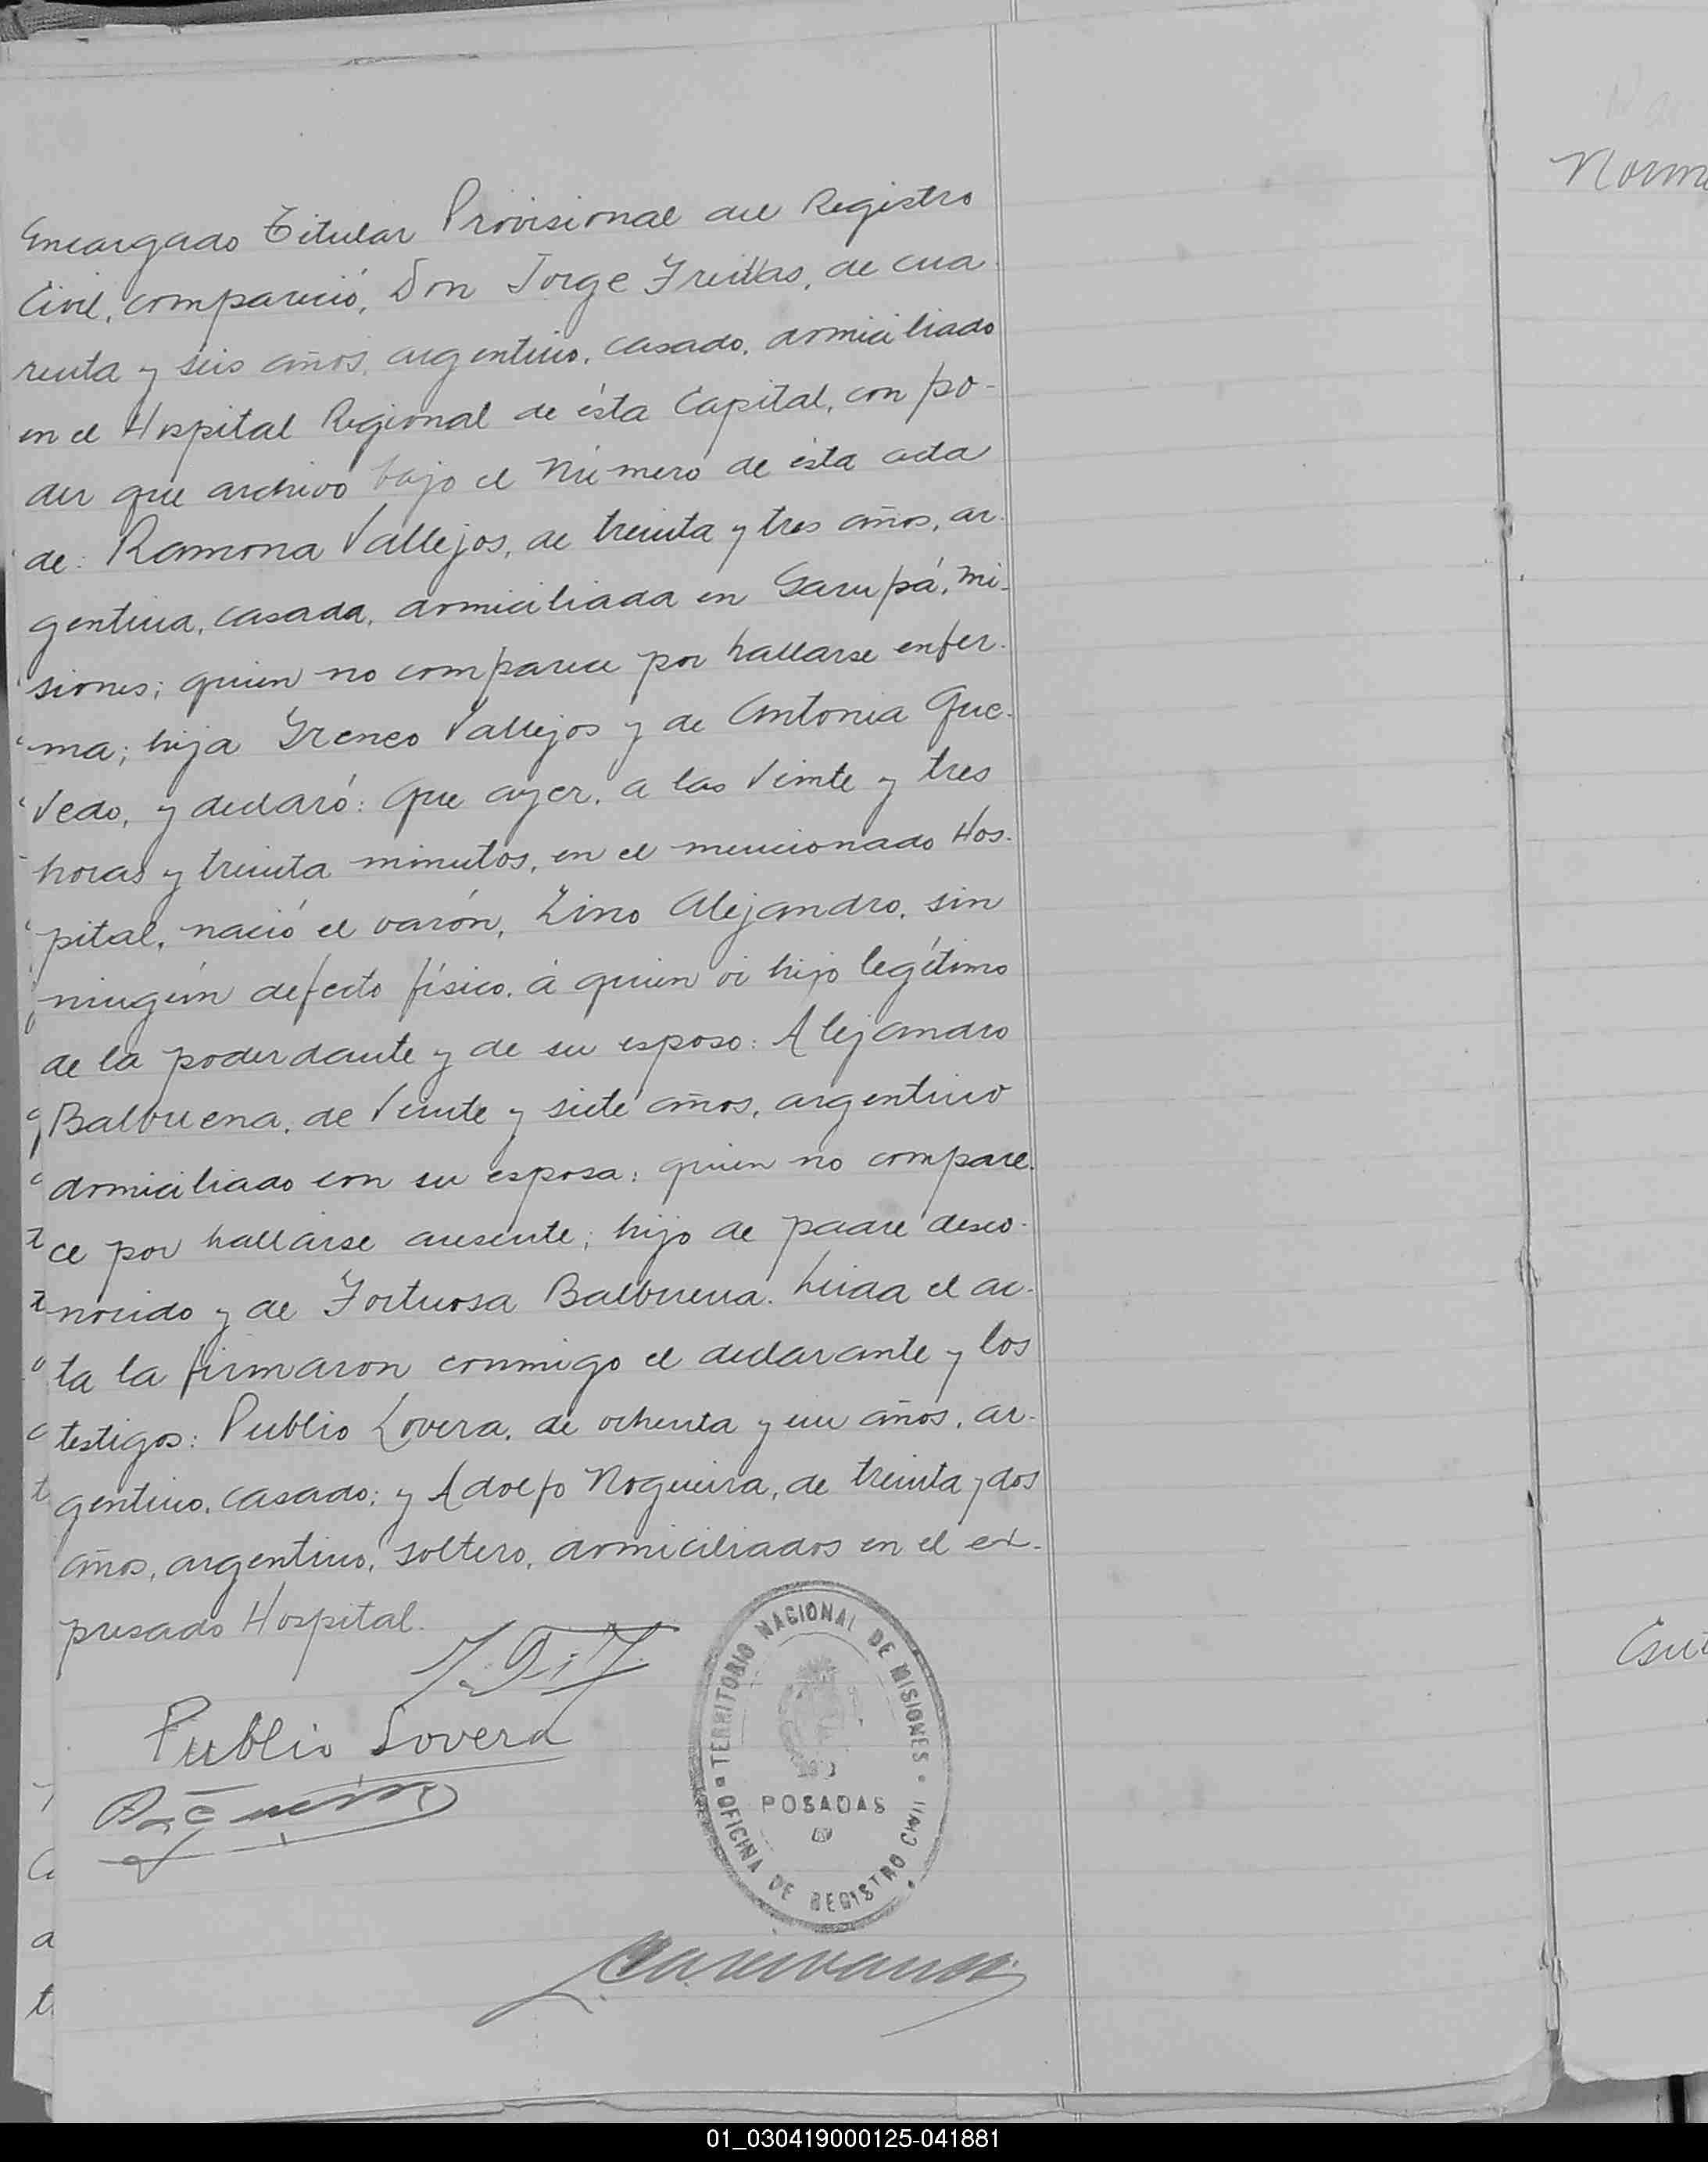 Encargado Titular Provisional del Registro
Civil, compareció, Don Jorge Freitas, de cua-
renta y seis años, argentino, casado, domiciliado
en el Hospital Regional de ésta Capital, con po-
der que archivo bajo el Número de ésta acta
de: Ramona Vallejos, de treinta y tres años, ar-
gentina, casada, domiciliada en Garupá, Mi-
siones; quien no comparece por hallarse enfer-
ma; hija Ireneo Vallejos y de Antonia Que-
vedo, y declaró: Que ayer, a las Veinte y tres
horas y treinta minutos, en el mencionado Hos-
pital, nació el varón, Lino Alejandro, sin
ningún defecto físico, á quien vi hijo legítimo
de la poderdante y de su esposo: Alejandro
Balbuena, de Veinte y siete años, argentino
domiciliado con su esposa; quien no compare-
ce por hallarse ausente; hijo de padre desco-
nocido y de Fortuosa Balbuena. Leida el ac-
ta la firmaron conmigo el declarante y los
testigos: Publio Lovera, de ochenta y un años, ar-
gentino, casado; y Adolfo Nogueira, de treinta y dos
años, argentino, soltero, domiciliados en el ex-
presado Hospital.
Publio Lovera
TERRITORIO NACIONAL DE MISIONES
POSADAS
OFICINA DE REGISTRO CIVIL
01_030419000125-041881